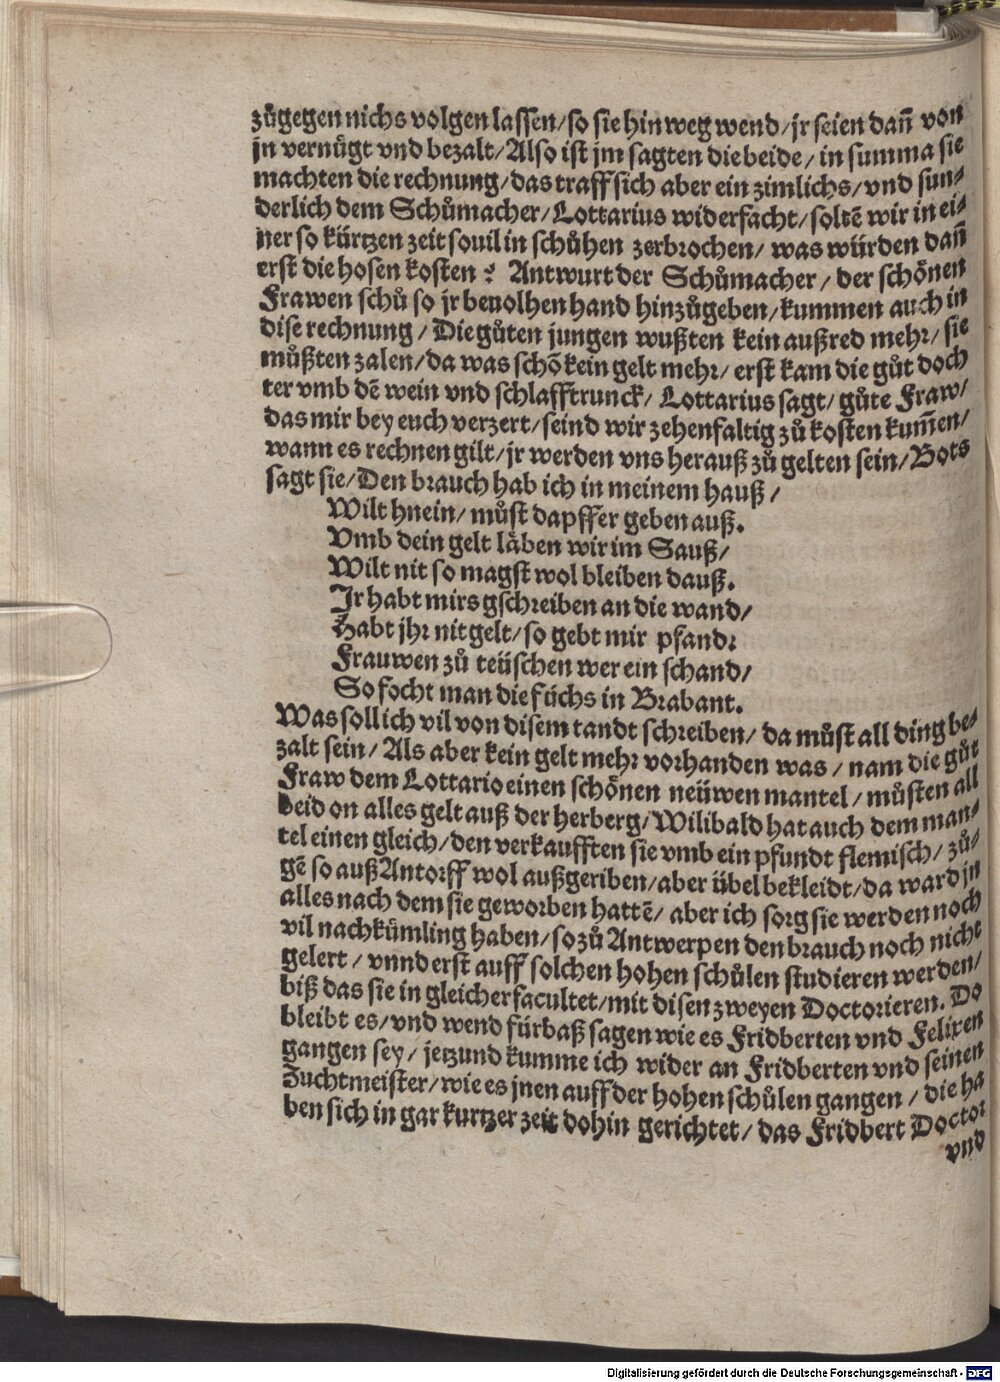 zůgegen nichs volgen lassen/so sie hinweg wend/jr seien dañ von
jn vernügt vnd bezalt/Also ist jm sagten die beide/in summa sie
machten die rechnung/das traff sich aber ein zimlichs/vnd sun-
derlich dem Schůmacher/Lottarius widerfacht/soltē wir in ei-
ner so kürtzen zeit souil in schůhen zerbrochen/ was würden dañ
erst die hosen kosten? Antwurt der Schůmacher/ der schönen
Frawen schů so jr beuolhen hand hinzůgeben/kummen auch in
dise rechnung/ Die gůten jungen wußten kein außred mehr/ sie
můßten zalen/da was schō kein gelt mehr/ erst kam die gůt doch
ter vmb dē wein vnd schlafftrunck/ Lottarius sagt/ gůte Fraw/
das mir bey euch verzert/seind wir zehenfaltig zů kosten kum̄en/
wann es rechnen gilt/jr werden vns herauß zů gelten sein/Bots
sagt sie/Den brauch hab ich in meinem hauß/
Wilt hnein/ můst dapffer geben auß.
Vmb dein gelt läben wir im Sauß/
Wilt nit so magst wol bleiben dauß.
Ir habt mirs gschreiben an die wand/
Habt jhr nit gelt/so gebt mir pfand:
Frauwen zů teüschen wer ein schand/
So focht man die füchs in Brabant.
Was soll ich vil von disem tandt schreiben/ da můst all ding be-
zalt sein/ Als aber kein gelt mehr vorhanden was/ nam die gůt
Fraw dem Lottario einen schönen neüwen mantel/ můsten all
beid on alles gelt auß der herberg/Wilibald hat auch dem man-
tel einen gleich/den verkaufften sie vmb ein pfundt flemisch/ zů-
gē so auß Antorff wol außgeriben/aber übel bekleidt/da ward jn
alles nach dem sie geworben hattē/ aber ich sorg sie werden noch
vil nachkümling haben/so zů Antwerpen den brauch noch nicht
gelert/ vnnd erst auff solchen hohen schůlen studieren werden/
biß das sie in gleicher facultet/mit disen zweyen Doctorieren. Do
bleibt es/vnd wend fürbaß sagen wie es Fridberten vnd Felixen
gangen sey/ jetzund kumme ich wider an Fridberten vnd seinen
Zuchtmeister/wie es jnen auff der hohen schůlen gangen/ die ha
ben sich in gar kurtzer zeit dohin gerichtet/ das Fridbert Doctor
vnd
Digitalisierung gefördert durch die Deutsche Forschungsgemeinschaft - DFG